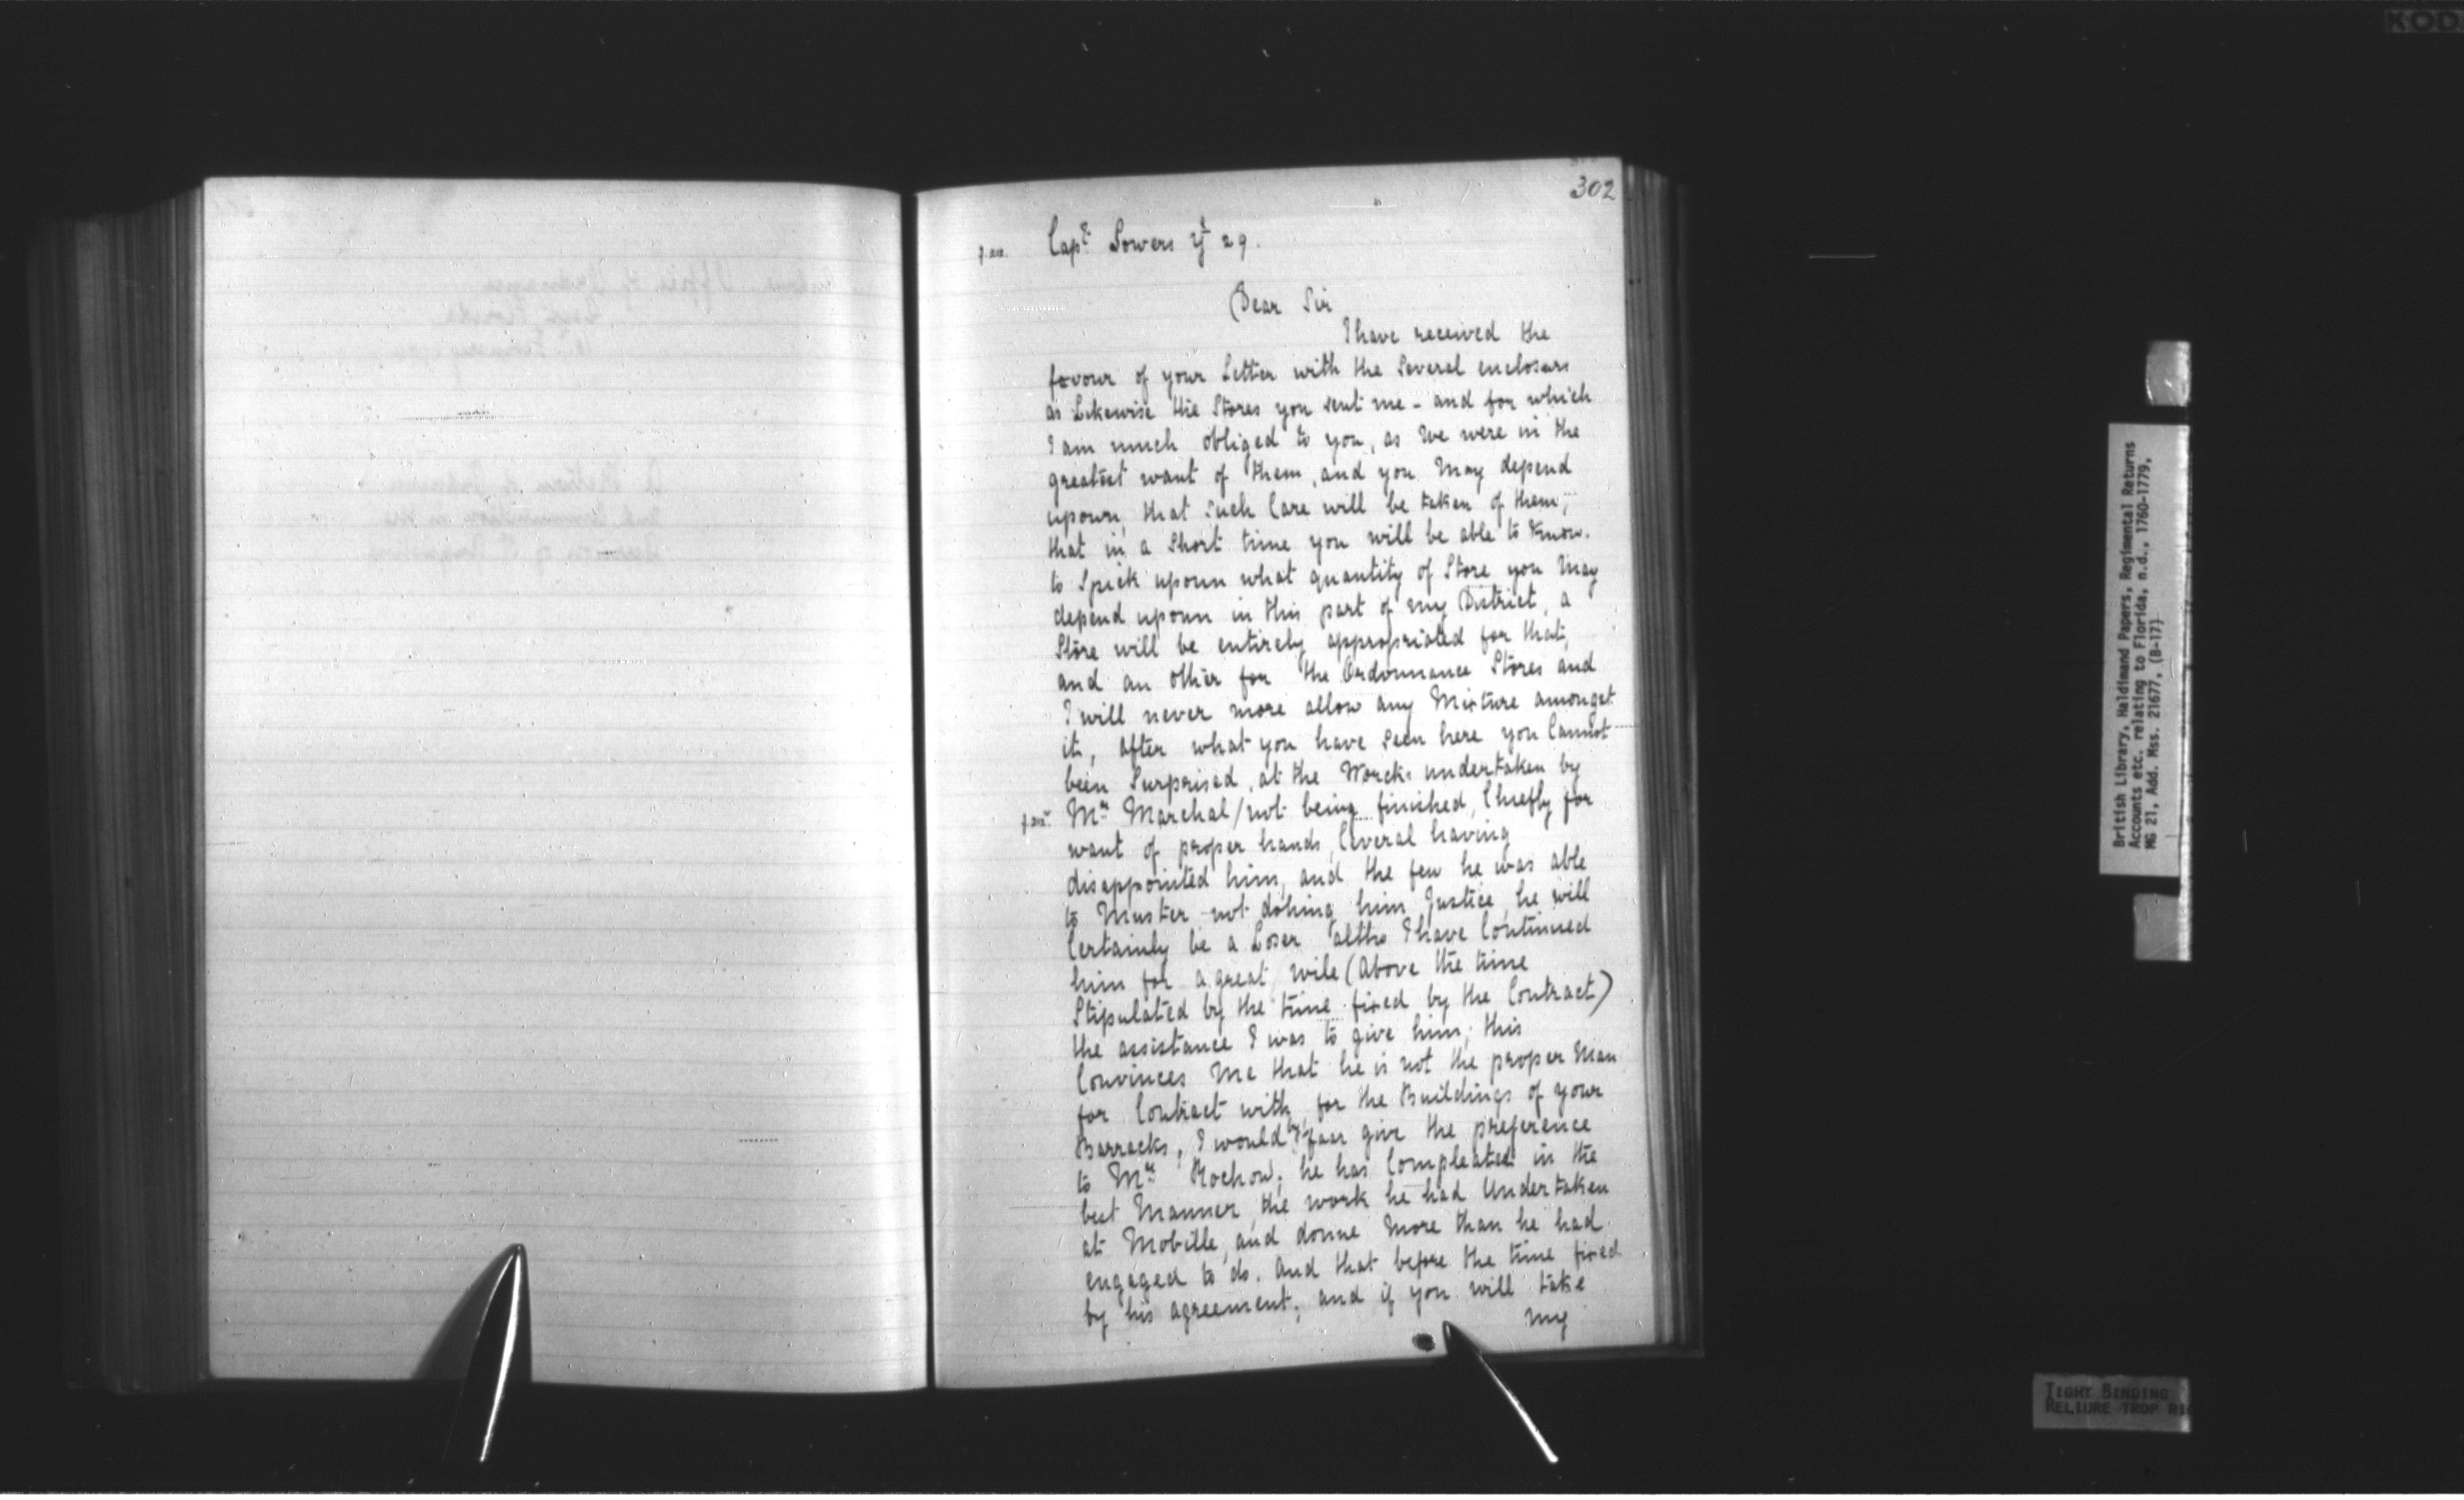 302
Capt. Sowers 29.
Dear Sir
I have received the
favour of your Letter with the Several enclosurs
as Likewise the Stores you sent me - and for which
I am much obliged to you, as We were in the
greatest want of them, and you May depend
upoun, that such Care will be taken of them,
that in a Short time you will be able to Know.
to Speik upoun what quantity of Store you May
depend upoun in this part of my District, a
Store will be entirely appropriated for that,
and an other for the Ordonnance Stores and
I will never more allow any Mixture amongst
it, after what you have seen here you Cannot
been Surprised, at the Worcks undertaken by
Mr. Marchal / not being finished, Chiefly for
want of proper hands, Ceveral having
disappointed him, and the few he was able
to Muster not dohing him Justice, he will
Certainly be a Loser altho I have Continued
him for a great wile (above the time
Stipulated by the time fixed by the Contract)
the assistance I was to give him; this
Convinces Me that he is not the proper Man
for Contract with, for the Buildings of your
Barracks, I would by faar give the preference
to Mr. Rochow; he has Compleated in the
best Manner, the work he had Undertaken
at Mobille, and donne More than he had
engaged to do. and that before the time fixed
by his agreement; and if you will take
My
British Library, Haldimand Papers, Regimental Returns
Accounts etc. relating to Florida, n.d., 1760-1779,
MG 21, Add. Mss. 21677, (B-17)
TIGHT BINDING
RELIURE TROP
KOD